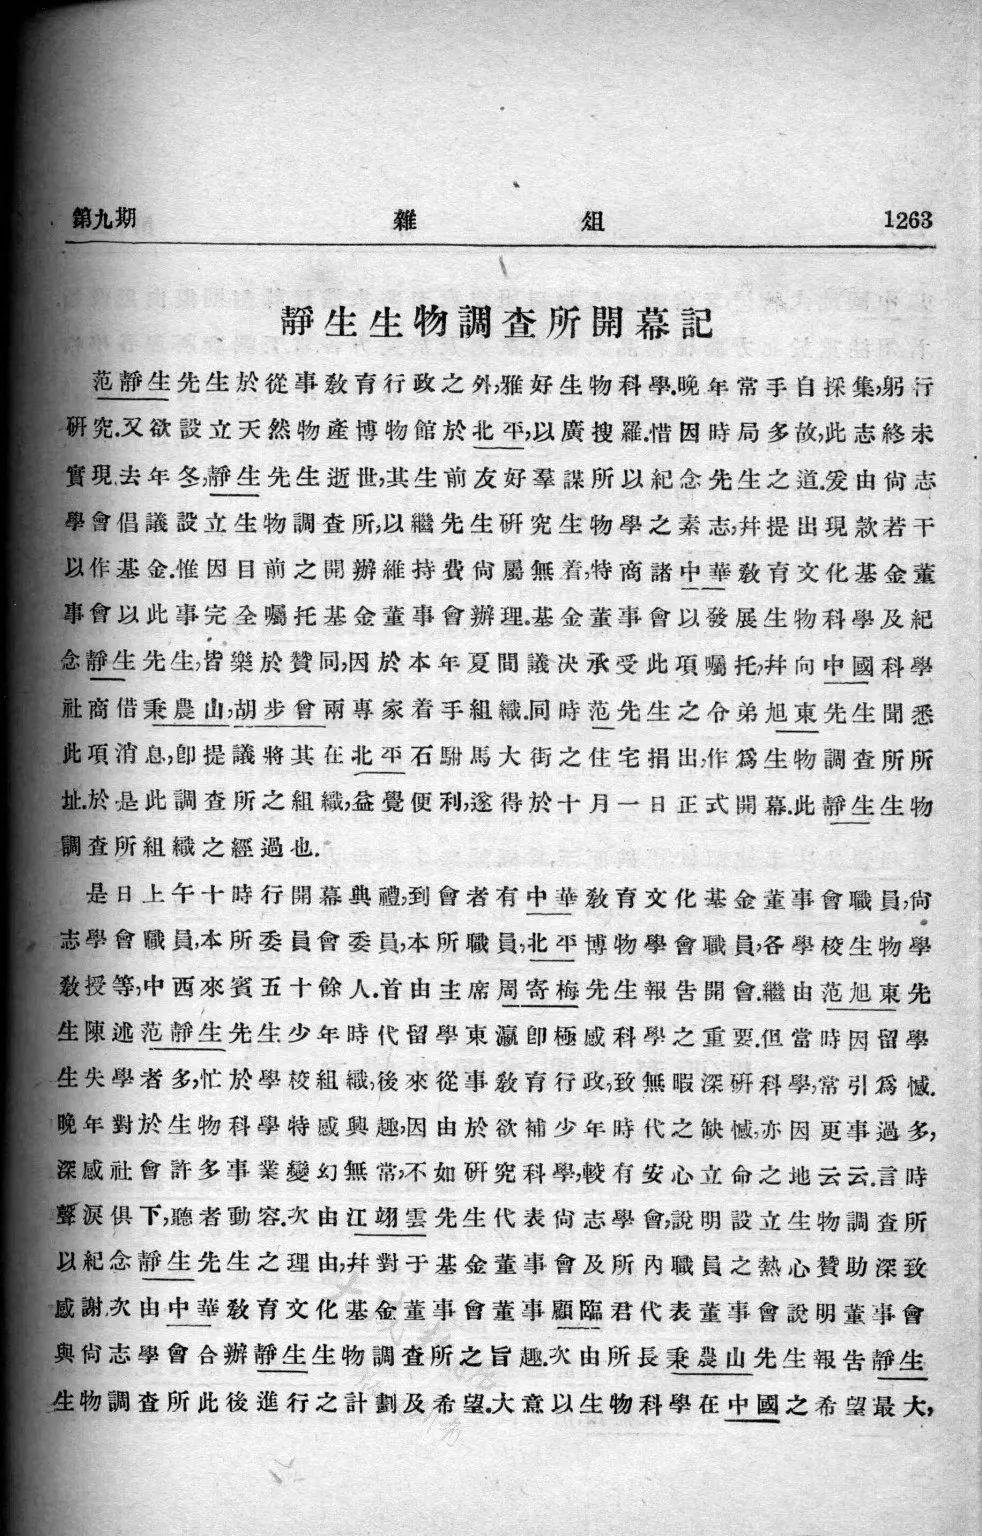 第九期 雜俎 1263
靜生生物調查所開幕記
范靜生先生於從事敎育行政之外,雅好生物科學.晚年常手自採集,躬行
硏究.又欲設立天然物產博物館於北平,以廣搜羅.惜因時局多故,此志終未
實現.去年冬,靜生先生逝世,其生前友好羣謀所以紀念先生之道.爰由尙志
學會倡議設立生物調查所,以繼先生硏究生物學之素志,幷提出現款若干
以作基金.惟因目前之開辦維持費尙屬無着,特商諸中華敎育文化基金董
事會以此事完全囑托基金董事會辦理.基金董事會以發展生物科學及紀
念靜生先生,皆樂於贊同,因於本年夏間議决承受此項囑托,幷向中國科學
社商借秉農山,胡步曾兩專家着手組織.同時范先生之令弟旭東先生聞悉
此項消息,卽提議將其在北平石駙馬大街之住宅捐出,作爲生物調查所所
址.於是此調查所之組織,益覺便利,遂得於十月一日正式開幕.此靜生生物
調查所組織之經過也.
是日上午十時行開幕典禮,到會者有中華敎育文化基金董事會職員,尙
志學會職員,本所委員會委員,本所職員,北平博物學會職員,各學校生物學
敎授等,中西來賓五十餘人.首由主席周寄梅先生報告開會.繼由范旭東先
生陳述范靜生先生少年時代留學東瀛卽極感科學之重要.但當時因留學
生失學者多,忙於學校組織,後來從事敎育行政,致無暇深硏科學,常引爲憾.
晚年對於生物科學特感興趣,因由於欲補少年時代之缺憾,亦因更事過多,
深感社會許多事業變幻無常,不如硏究科學,較有安心立命之地云云.言時
聲淚俱下,聽者動容.次由江翊雲先生代表尙志學會,說明設立生物調查所
以紀念靜生先生之理由,幷對于基金董事會及所內職員之熱心贊助深致
感謝.次由中華敎育文化基金董事會董事顧臨君代表董事會說明董事會
與尙志學會合辦靜生生物調查所之旨趣.次由所長秉農山先生報告靜生
生物調查所此後進行之計劃及希望.大意以生物科學在中國之希望最大,